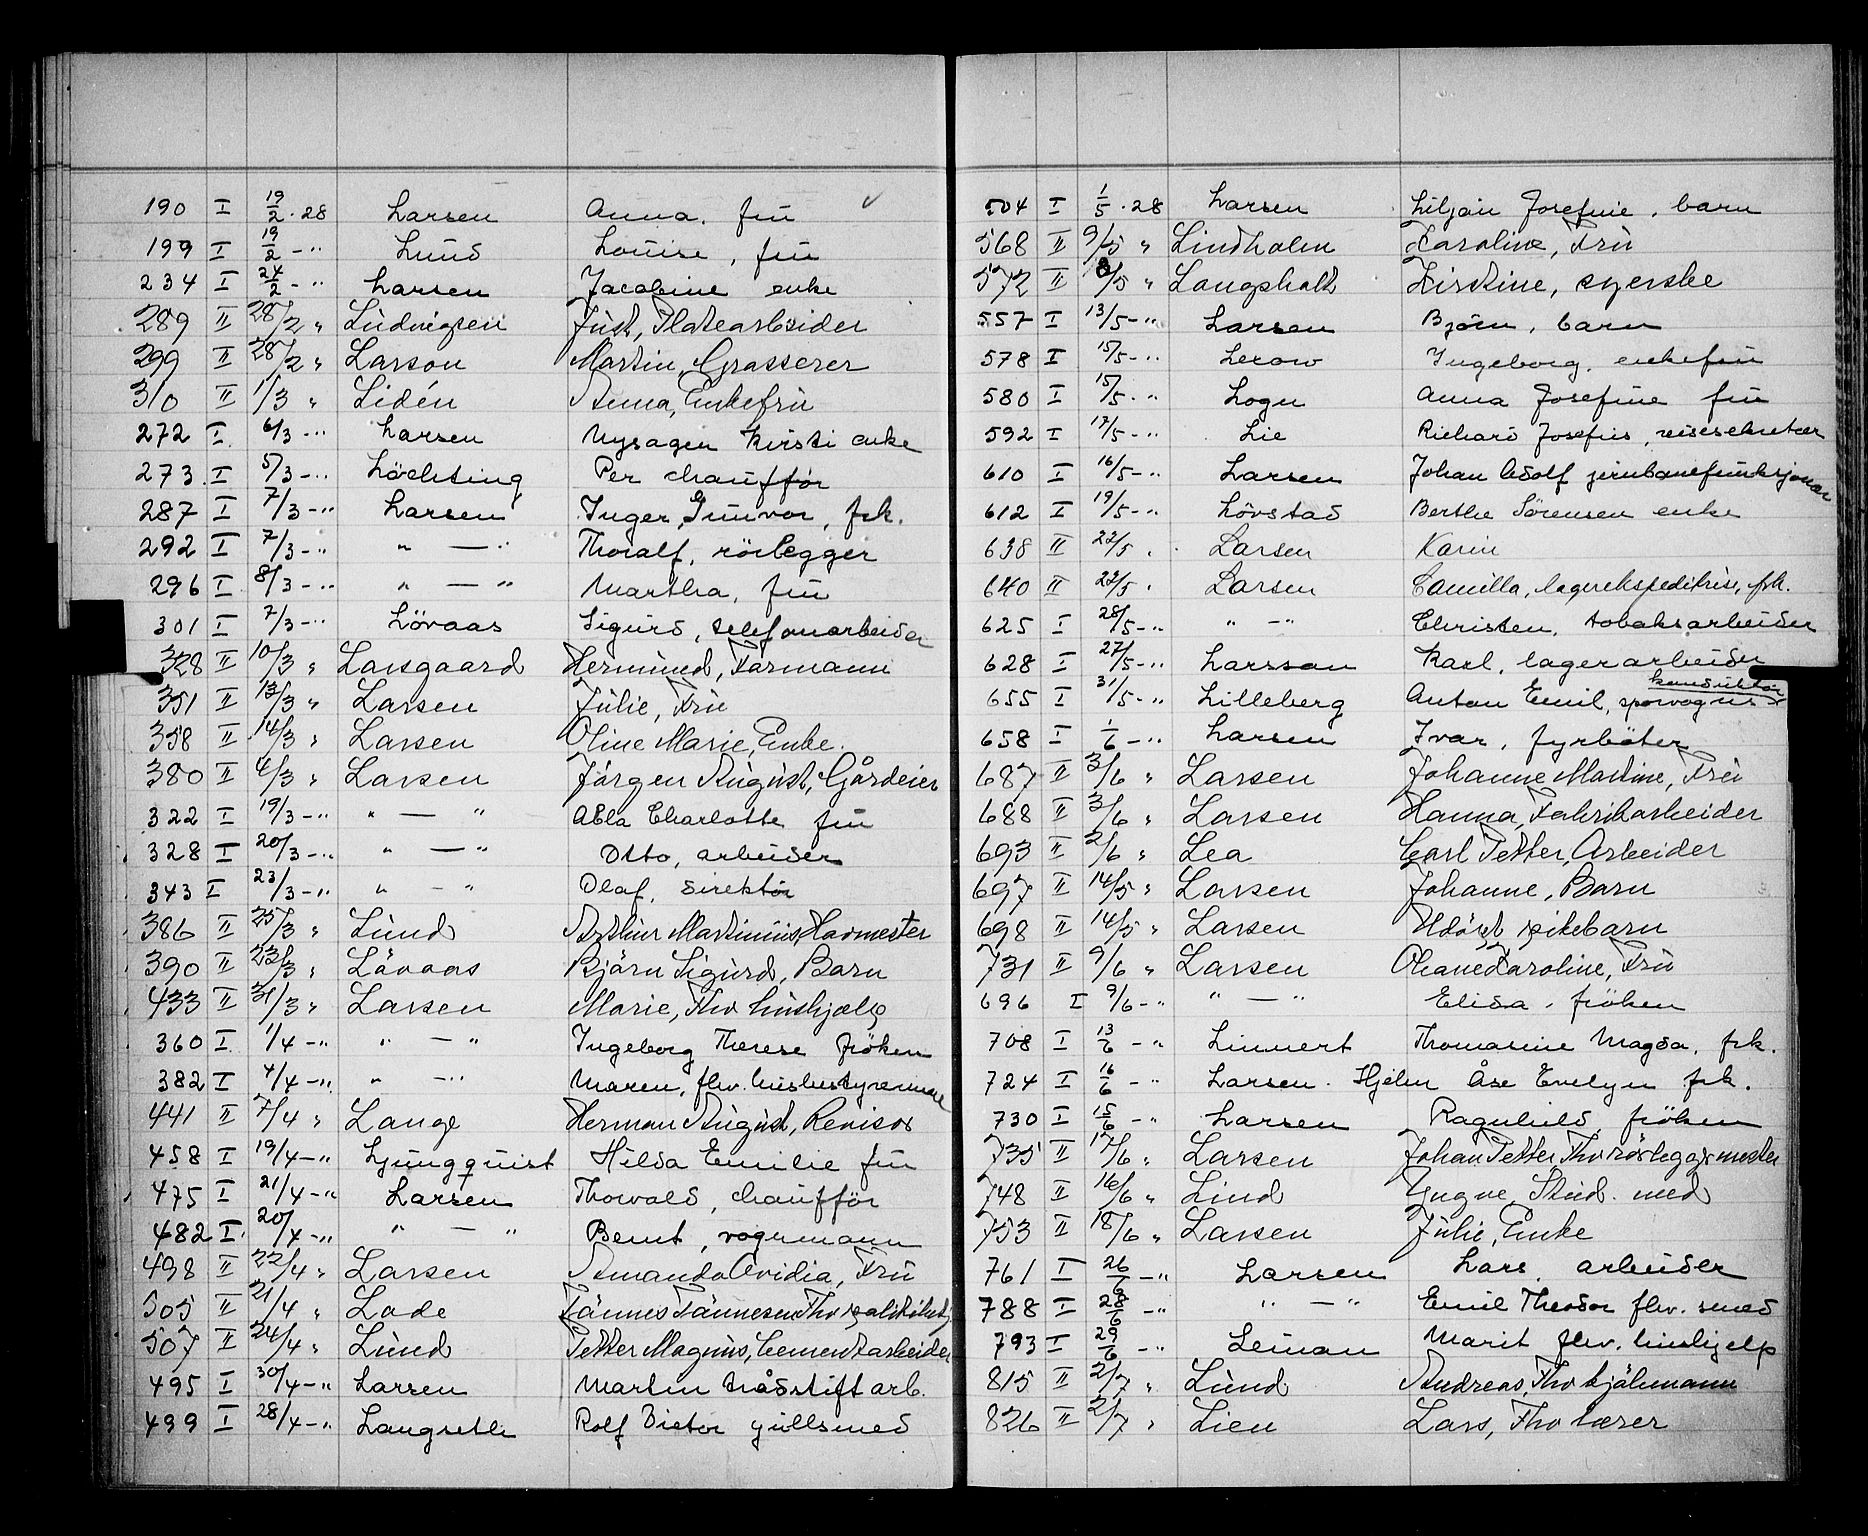 190 I 19/2 . 28 Larsen Anna, frú
199 I 19/2 - " Lund Louise, frú
234 I 24/2 - " Larsen Jacobine enke
289 II 28/2 " Ludvigsen Just, Platearbeider
299 II 28/2 " Larson Martin, Grasserer
310 II 1/3 " Lidén Anna, Enkefrú
272 I 6/3 - " Larsen Nysagen Kirsti enke
273 I 5/3 - " Löchting Per chaufför
287 I 7/3 - " Larsen Inger, Gunvor, frk.
292 I 7/3 - " " — " Thoralf, rörlegger
296 I 8/3 - " " — " Martha, frú
301 I 7/3 - " Lövaas Sigurd, telefonarbeider
328 II 10/3 " Larsgaard Hermund, Formann
351 II 13/3 " Larsen Julie, Frú
358 II 14/3 " Larsen Oline Marie, Enke.
380 II 4/3 " Larsen Jörgen August, Gårdeier
322 I 19/3 - " " — " Abla Charlotte frú
328 I 20/3 - " " — " Otto, arbeider
343 I 23/3 - " " — " Olaf, direktör
386 II 25/3 " Lund Arthur Martinius, Havmester
390 II 23/3 " Lövaas Björn Sigurd, Barn
433 II 31/3 " Larsen Marie, Fhv hushjælp
360 I 1/4 - " " — " Ingeborg Therese fröken
382 I 4/4 - " " — " Maren, fhv. husbestyrerinne
441 II 7/4 " Lange Herman August, Revisor
458 I 19/4 - " Ljungquist Hilda Emilie frú
475 I 21/4 - " Larsen Thorvald, chaufför
482 I 20/4 - " " — " Bernt, vognmann
498 II 22/4 " Larsen Amanda Ovidia, Frú
505 II 21/4 " Lode Tönnes Tönnesen Fhv
507 II 24/4 " Lund Petter Magnus, Cementarbeider
495 I 30/4 - " Larsen Martin trådstiftarb.
499 I 28/4 - " Langseth Rolf Victor gullsmed
504 I 1/5 . 28 Larsen Liljan Josefine, barn
568 II 9/5 " Lindholm Karoline, Frú
572 II 8/5 " Langsholt Kirstine, syerske
557 I 13/5 - " Larsen Björn, barn
578 I 15/5 - " Lexow Ingeborg, enkefrú
580 I 15/5 - " Logn Anna Josefine frú
592 I 17/5 - " Lie Richard Josefus, reisesekretær
610 I 16/5 - " Larsen Johan Adolf jernbanefunksjonær
612 I 19/5 - " Lövstad Berthe Sörensen enke
638 II 22/5 " Larsen Karin
640 II 22/5 " Larsen Camilla, lagerekspeditrise, frk.
625 I 28/5 - " " — " Christen, tobaksarbeider
628 I 27/5 - " Larsson Karl, lagerarbeider
655 I 31/5 - " Lilleberg Anton Emil, sporvogns- konduktör
658 I 1/6 - " Larsen Ivar, fyrböter
687 II 3/6 " Larsen Johanne Martine, Frú
688 II 3/6 " Larsen Hanna, Fabrikarbeider
693 II 2/6 " Lea Carl Petter, Arbeider
697 II 14/5 " Larsen Johanne, Barn
698 II 14/5 " Larsen Udöpt pikebarn
731 II 9/6 " Larsen Karoline, Frú
696 I 9/6 - " " — " Elida, fröken
708 I 13/6 - " Linnert Thomasine Magda, frk.
724 I 16/6 - " Larsen-Hjelm Åse Evelyn frk.
730 I 15/6 - " Larsen Ragnhild, fröken
735 II 17/6 " Larsen Johan Petter, Fhv rörleggermester
748 II 16/6 " Lind Yngve, Stud. med
753 II 18/6 " Larsen Julie, Enke
761 I 26/6 - " Larsen Lars, arbeider
788 I 28/6 - " " — " Emil Theodor fhv. smed
793 I 29/6 - " Leinan Marit fhv. hushjelp
815 II 2/7 " Lund Andreas, Fhv kjöbmann
826 II 2/7 " Lien Lars, Fhv lærer